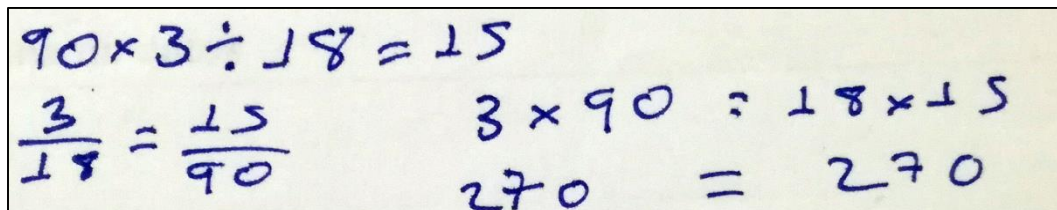 90×3÷18=15
3/18 = 15/90
3×90 = 18×15
270 = 270